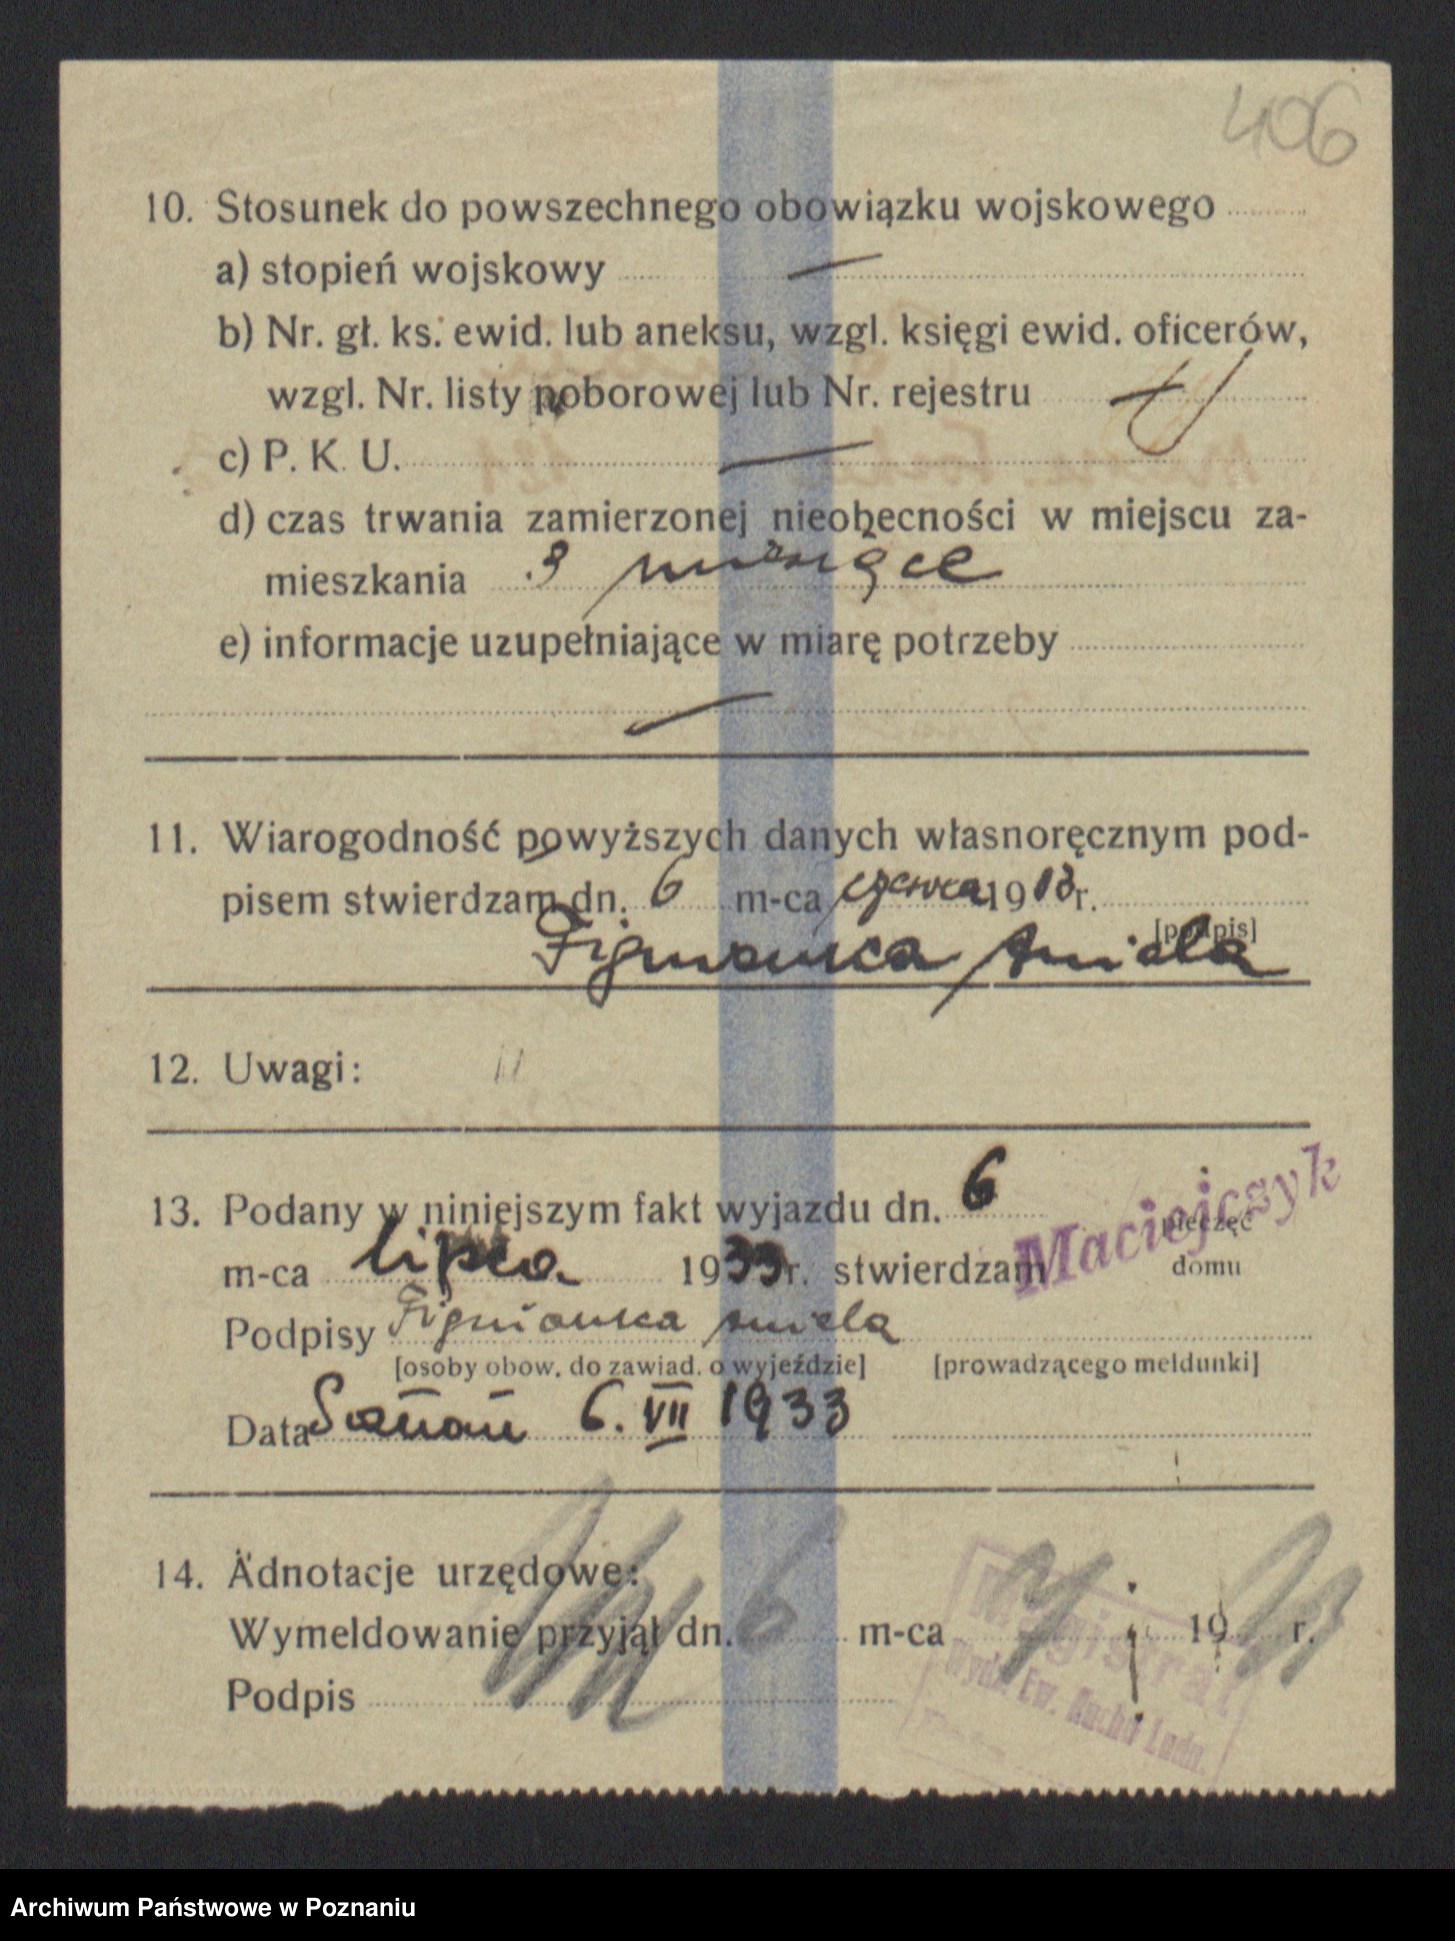 406
10. Stosunek do powszechnego obowiązku wojskowego
a) stopień wojskowy —
b) Nr. gł. ks. ewid. lub aneksu, wzgl. księgi ewid. oficerów,
wzgl. Nr. listy poborowej lub Nr. rejestru
c) P. K. U. —
d) czas trwania zamierzonej nieobecności w miejscu za-
mieszkania 3 miesiące
e) informacje uzupełniające w miarę potrzeby
—
11. Wiarogodność powyższych danych własnoręcznym pod-
pisem stwierdzam dn. 6 m-ca czerwca 19 r.
[podpis]
Aniela
12. Uwagi:
13. Podany w niniejszym fakt wyjazdu dn. 6
pieczęć
Maciejczyk
m-ca lipca 1933 r. stwierdzam domu
Podpisy Aniela
[osoby obow. do zawiad. o wyjeździe] [prowadzącego meldunki]
Data 6. VII 1933
14. Adnotacje urzędowe:
Wymeldowanie przyjął dn. 6 m-ca 7 19 33 r.
Podpis
Magistrat
Wydz. Ew. Ruchu Ludn.
Archiwum Państwowe w Poznaniu